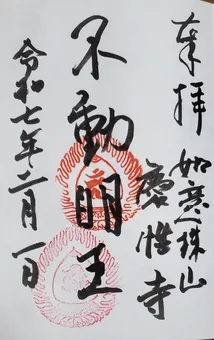 奉拝
如意珠山
慶性寺
不動明王
令和七年二月一日